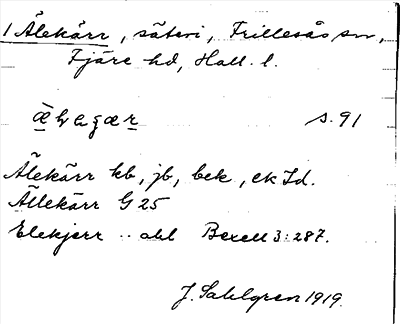 1 Älekärr, säteri, Frillesås sn,
Fjäre hd, Hall. l.
s. 91
Älekärr kb, jb, bek, ek Id.
Ällekärr G 25
Elekjerr .. ahl Bexell 3:287.
J. Sahlgren 1919.